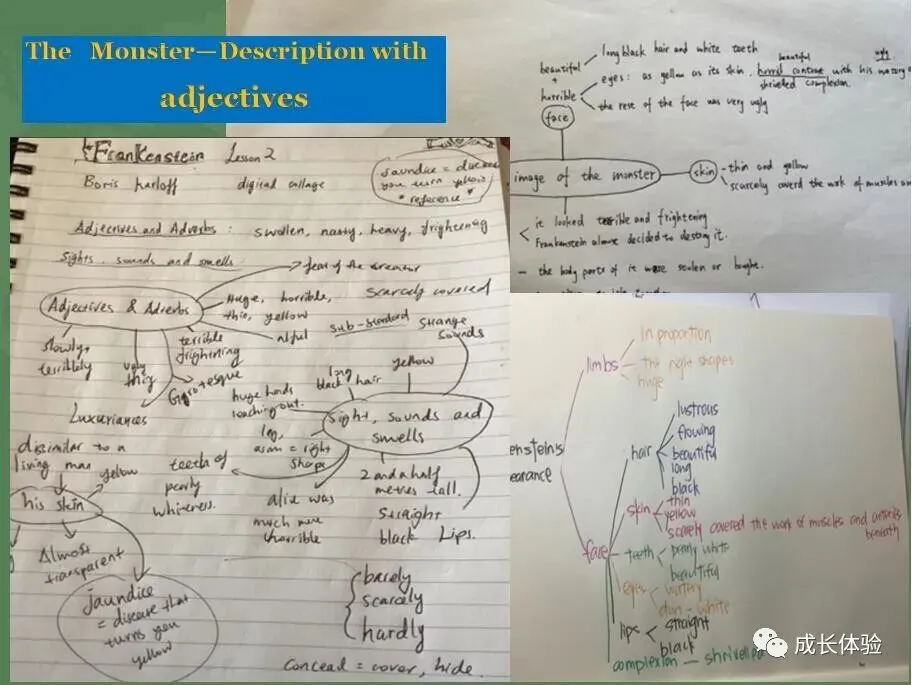 The Monster—Description with
adjectives
Frankenstein Lesson 2
Boris Karloff digital collage
Jaundice =
you turn yellow
* reference *
Adjectives and Adverbs : swollen, nasty, heavy, frightening
Sights, sounds and smells
fear of the creator
Adjectives & Adverbs
Huge, horrible,
thin, yellow
scarcely covered
slowly,
terribly
ugly
thing
terrible
frightening
Luxuriances
sub-standard
strange
sounds
yellow
long
black hair
huge hands
sight, sounds and
smells
leg,
= right
shape
teeth of
pearly
whiteness.
2 and a half
metres tall.
was
much more
horrible
straight
black Lips.
dissimilar to a
living man
yellow
his skin
Almost
transparent
jaundice
= disease that
turns you
yellow
barely
scarcely
hardly
concead = cover, hide.
long black hair and white teeth
beautiful
+
horrible
face
eyes: as yellow as its skin, horrid contrast with his watery
beautiful
ugly
shriveled complexion.
the rest of the face was very ugly
image of the monster
skin
- thin and yellow
scarcely coverd the work of muscles
it looked terrible and frightening
Frankenstein alone decided to destroy it.
- the body parts of it were stolen or bought.
limbs
In proportion
The right shapes
huge
enstein's
earance
hair
lustrous
flowing
beautiful
long
black
face
skin
thin
yellow
scarely covered the work of muscles and
beneath
teeth
pearly white
beautiful
eyes
watery
dun-white
lips
straight
black
complexion — shrivelled
成长体验